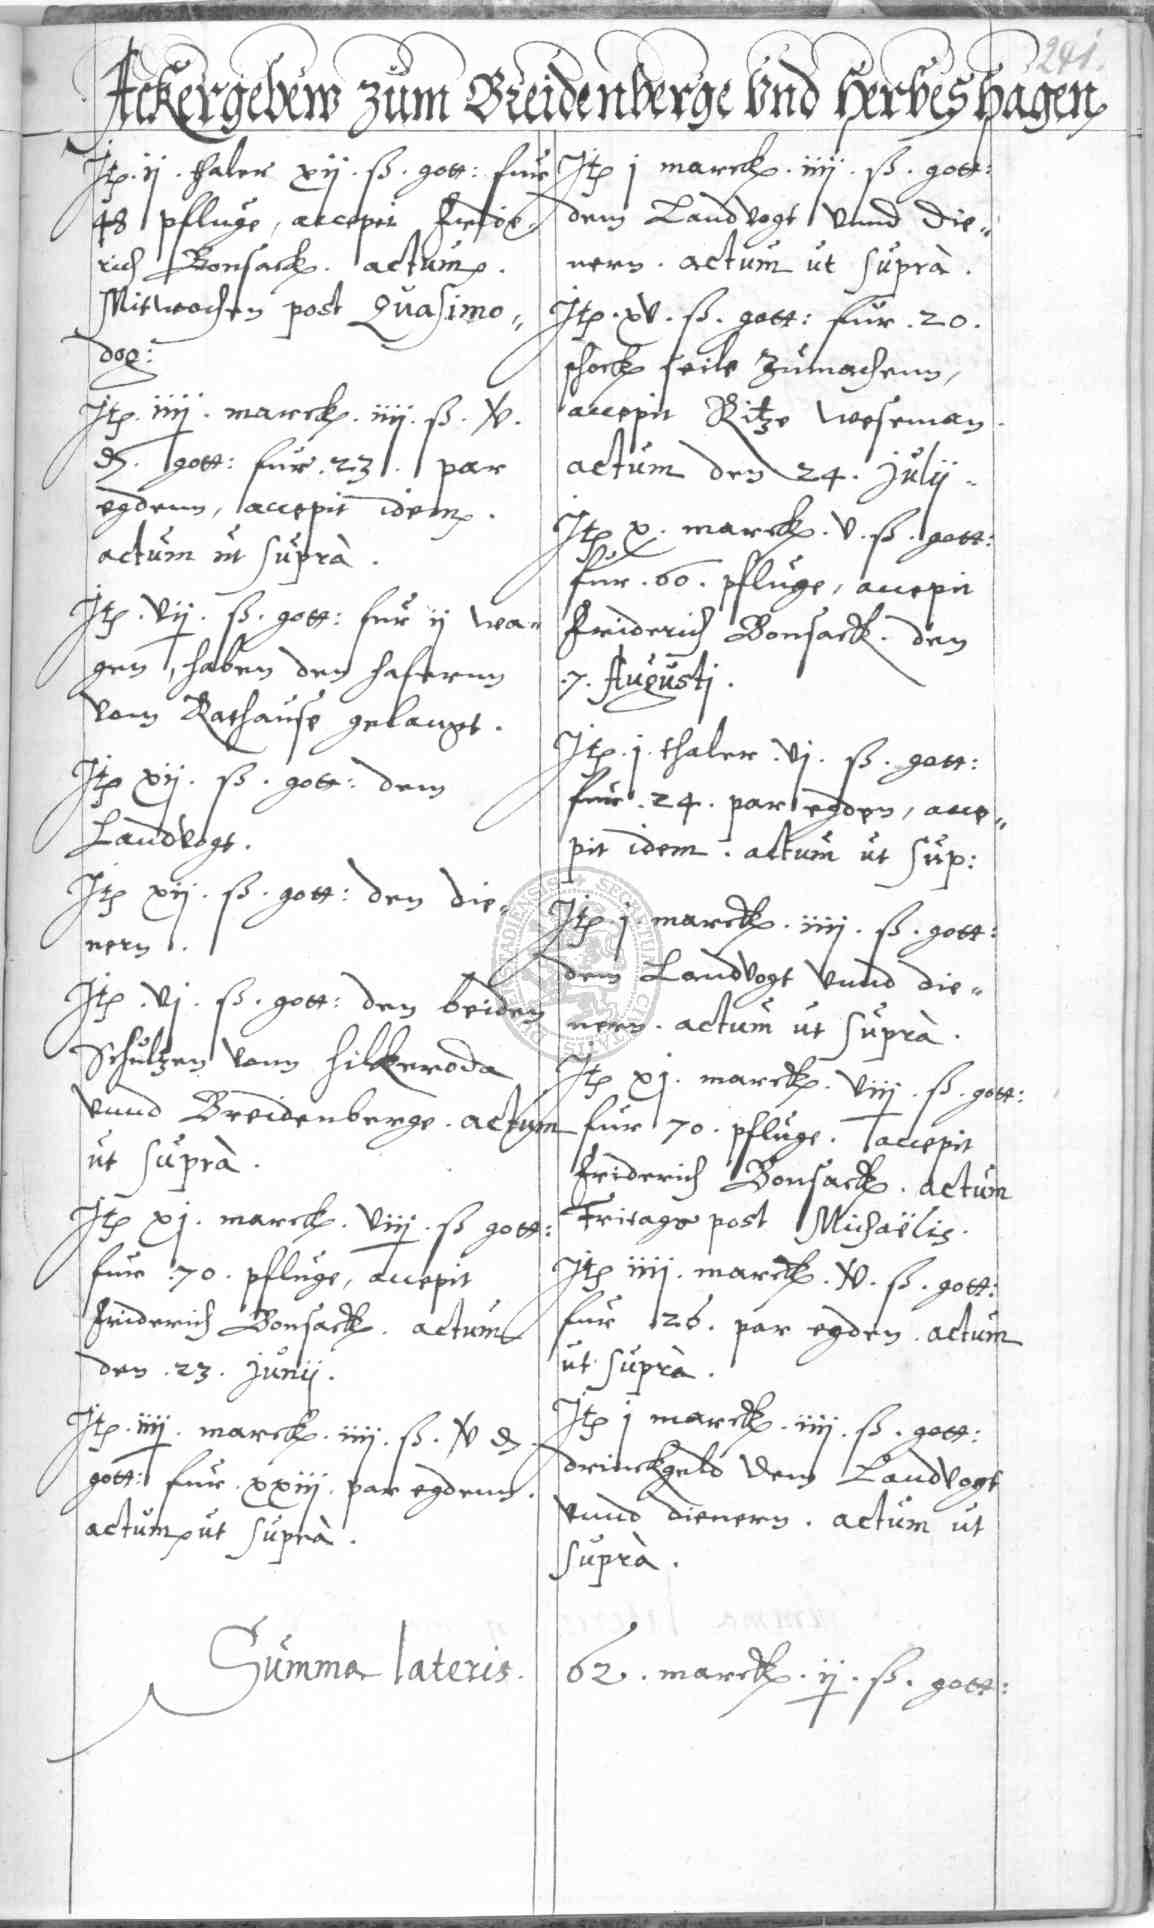 241.
Ackergebew zum Breidenberge vnd Herbeshagen
Itp. ij. thaler xij. ß. gott: fur
48 pfluge, accepit Fride-
rich Bonsack. actum.
Mitwochen post Quasimo-
dog:
Itp. iiij. marck. iiij. ß. v.
d. gott: fur. 23. par
egdenn, accepit idem.
actum ut suprà.
Itp. vij. ß. gott: fur ij wa-
gen, haben den hafernn
vom Rathause gelangt.
Itp xij. ß. gott: dem
Landvogt.
Itp xij. ß. gott: den die-
nern.
Itp. vj. ß. gott: den beiden
Schultzen vonn Hilkeroda
vnnd Breidenberge. actum
ut suprà.
Itp xj. marck. viij. ß gott:
fur .70. pfluge, accepit
Friderich Bonsack. actum
den .23. Junij.
Itp. iiij. marck. iiij. ß. v d.
gott: fur. xxiij. par egdenn.
actum ut suprà.
Itp j marck. iiij. ß. gott:
dem Landvogt vnnd die-
nern. actum ut suprà.
Itp. xv. ß. gott: fur .20.
schock seile zumachenn,
accepit Ritze Weseman.
actum den 24. Julij.
Itp x. marck. v. ß. gott:
fur .60. pfluge, accepit
Friderich Bonsack. den
.7. Augusti.
Itp. j. thaler. vj. ß. gott:
fur .24. par egden, acce-
pit idem. actum ut sup:
Itp. j. marck. iiij. ß. gott:
dem Landvogt vnnd die-
nern. actum ut suprà.
Itp xj. marck. viij. ß. gott:
fur 70. pfluge. accepit
Friderich Bonsack. actum
Fritags post Michaëlis.
Itp iiij. marck. v. ß. gott:
fur 26. par egden. actum
ut suprà.
Itp j marck. iiij. ß. gott:
drinckgeld dem Landvogt
vnnd dienern. actum ut
suprà.
Summa lateris. 62. marck. ij. ß. gott: